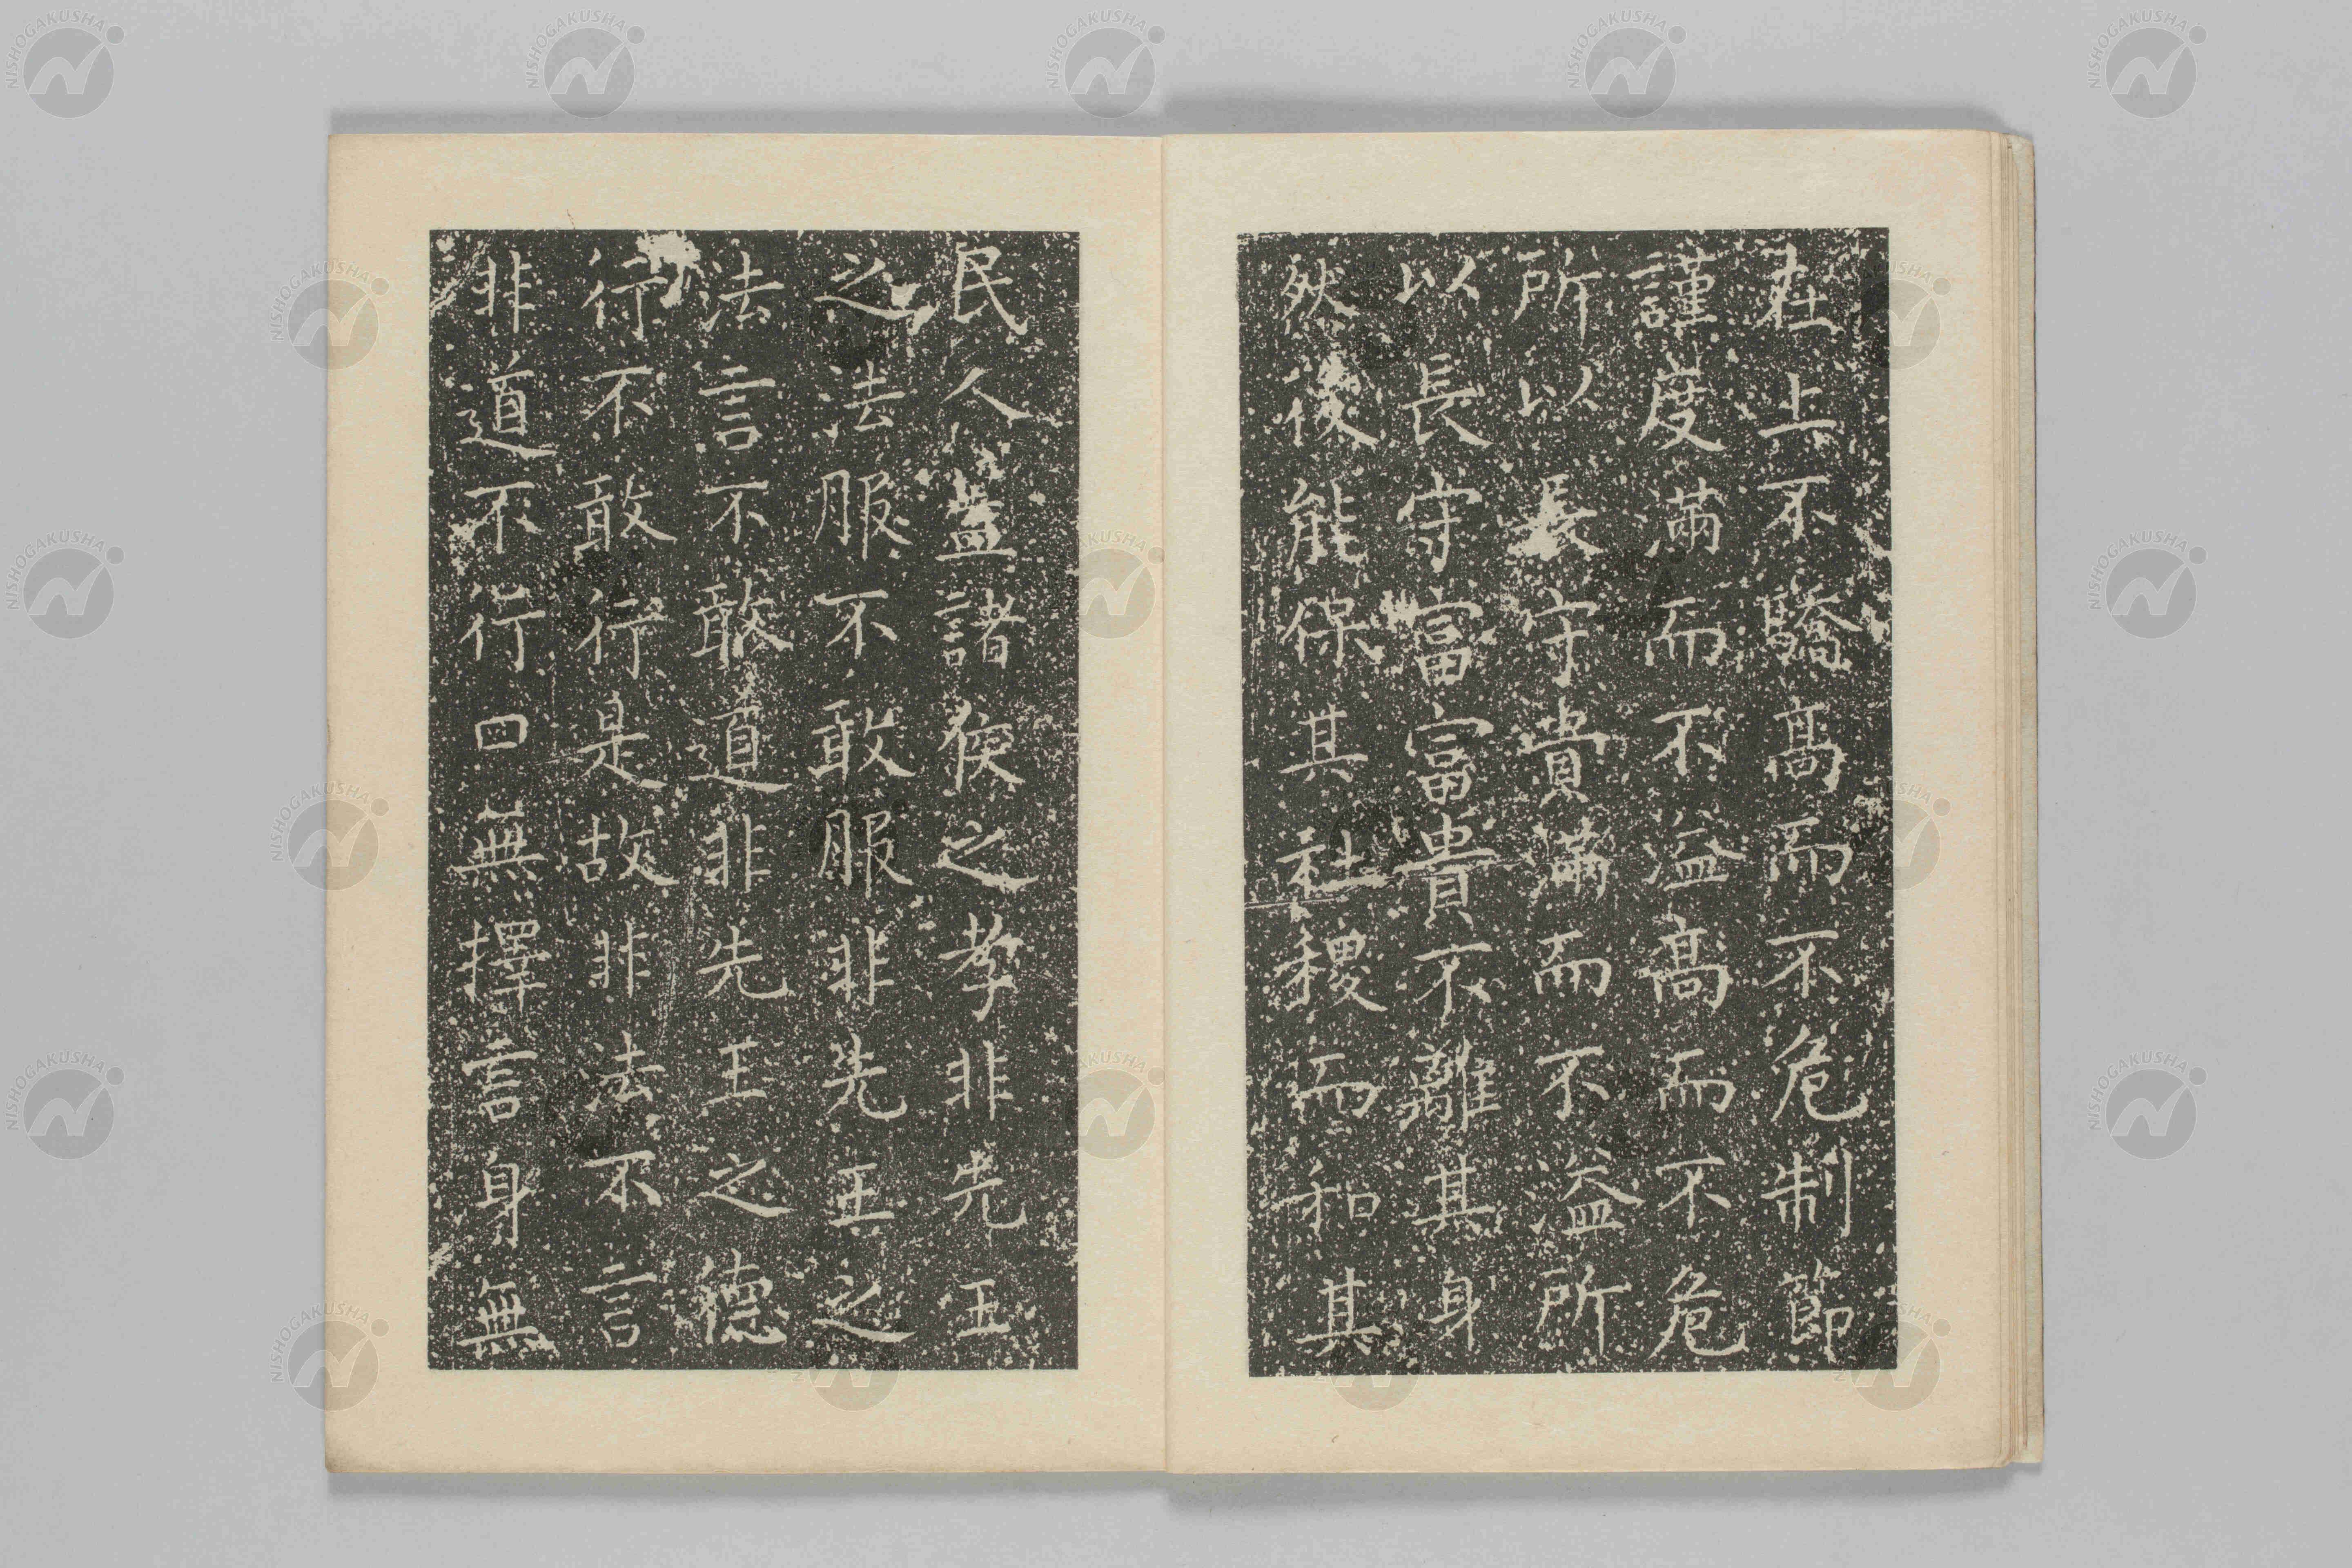 在上不驕高而不危制節
謹度滿而不溢高而不危
所以長守貴滿而不溢所
以長守富富貴不離其身
然後能保其社稷而和其
民人蓋諸侯之孝非先王
之法服不敢服非先王之
法言不敢道非先王之德
行不敢行是故非法不言
非道不行口無擇言身無
NISHOGAKUSHA